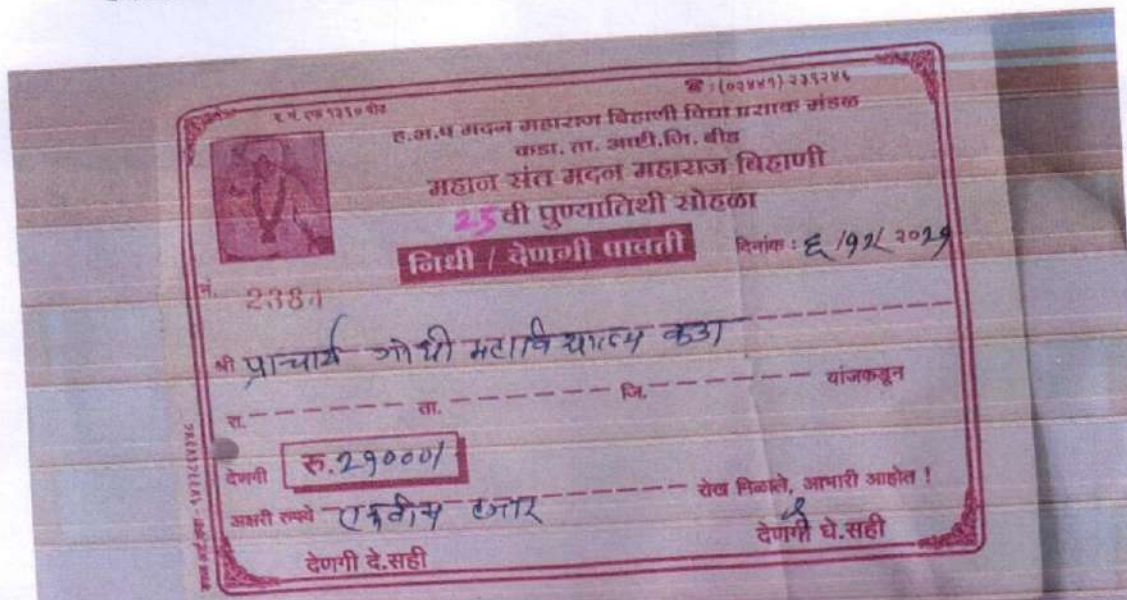 ☎ : (०२४४१) २३९२४६
ह.भ.प मदन महाराज बिहाणी विद्या प्रसाक मंडळ
कडा. ता. आष्टी.जि. बीड
महान संत मदन महाराज बिहाणी
25 वी पुण्यातिथी सोहळा
निधी / देणगी पावती
दिनांक : ६ /१२/ २०२१
नं.
श्री प्राचार्य गांधी महाविद्यालय कडा
रा. ता. जि. यांजकडून
देणगी रु.२१०००/
अक्षरी रुपये एकवीस हजार रोख मिळाले, आभारी आहोत !
देणगी दे.सही देणगी घे.सही